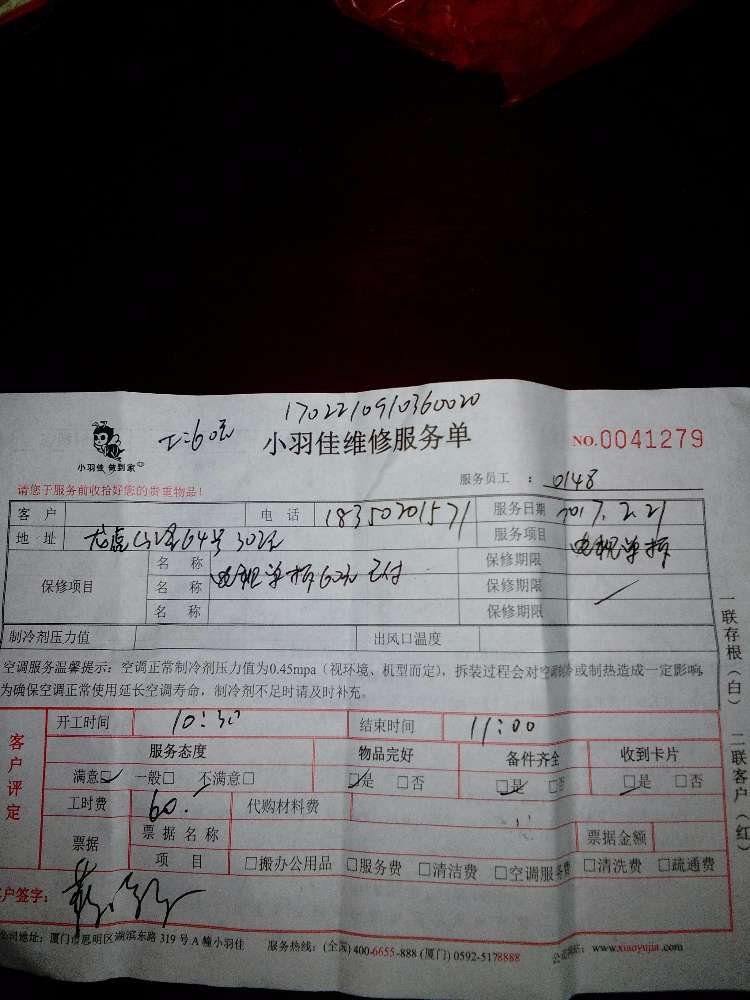 1702210910360020
工=60元 小羽佳维修服务单 NO.0041279
小羽佳 做到家
服务员工 : 0148
请您于服务前收拾好您的贵重物品!
客 户 电 话 18350201571 服务日期 2017.2.21
地 址 龙虎山路64号302元 服务项目 电视单拆
保修项目 名 称 电视单拆60元已付 保修期限
名 称 保修期限
名 称 保修期限
制冷剂压力值 出风口温度
空调服务温馨提示: 空调正常制冷剂压力值为0.45mpa(视环境、机型而定), 拆装过程会对空调制冷或制热造成一定影响,
为确保空调正常使用延长空调寿命, 制冷剂不足时请及时补充。
一联存根(白) 二联客户(红)
客户评定
开工时间 10:30 结束时间 11:00
服务态度 物品完好 备件齐全 收到卡片
满意□ 一般□ 不满意□ □是 □否 □是 □否 □是 □否
工时费 60. 代购材料费
票据 票据名称 票据金额
项 目 □搬办公用品 □服务费 □清洁费 □空调服务费 □清洗费 □疏通费
客户签字:
公司地址: 厦门市思明区湖滨东路 319 号 A 幢小羽佳 服务热线: (全国) 400-6655-888 (厦门) 0592-5178888 公司网站: www.xiaoyujia.com